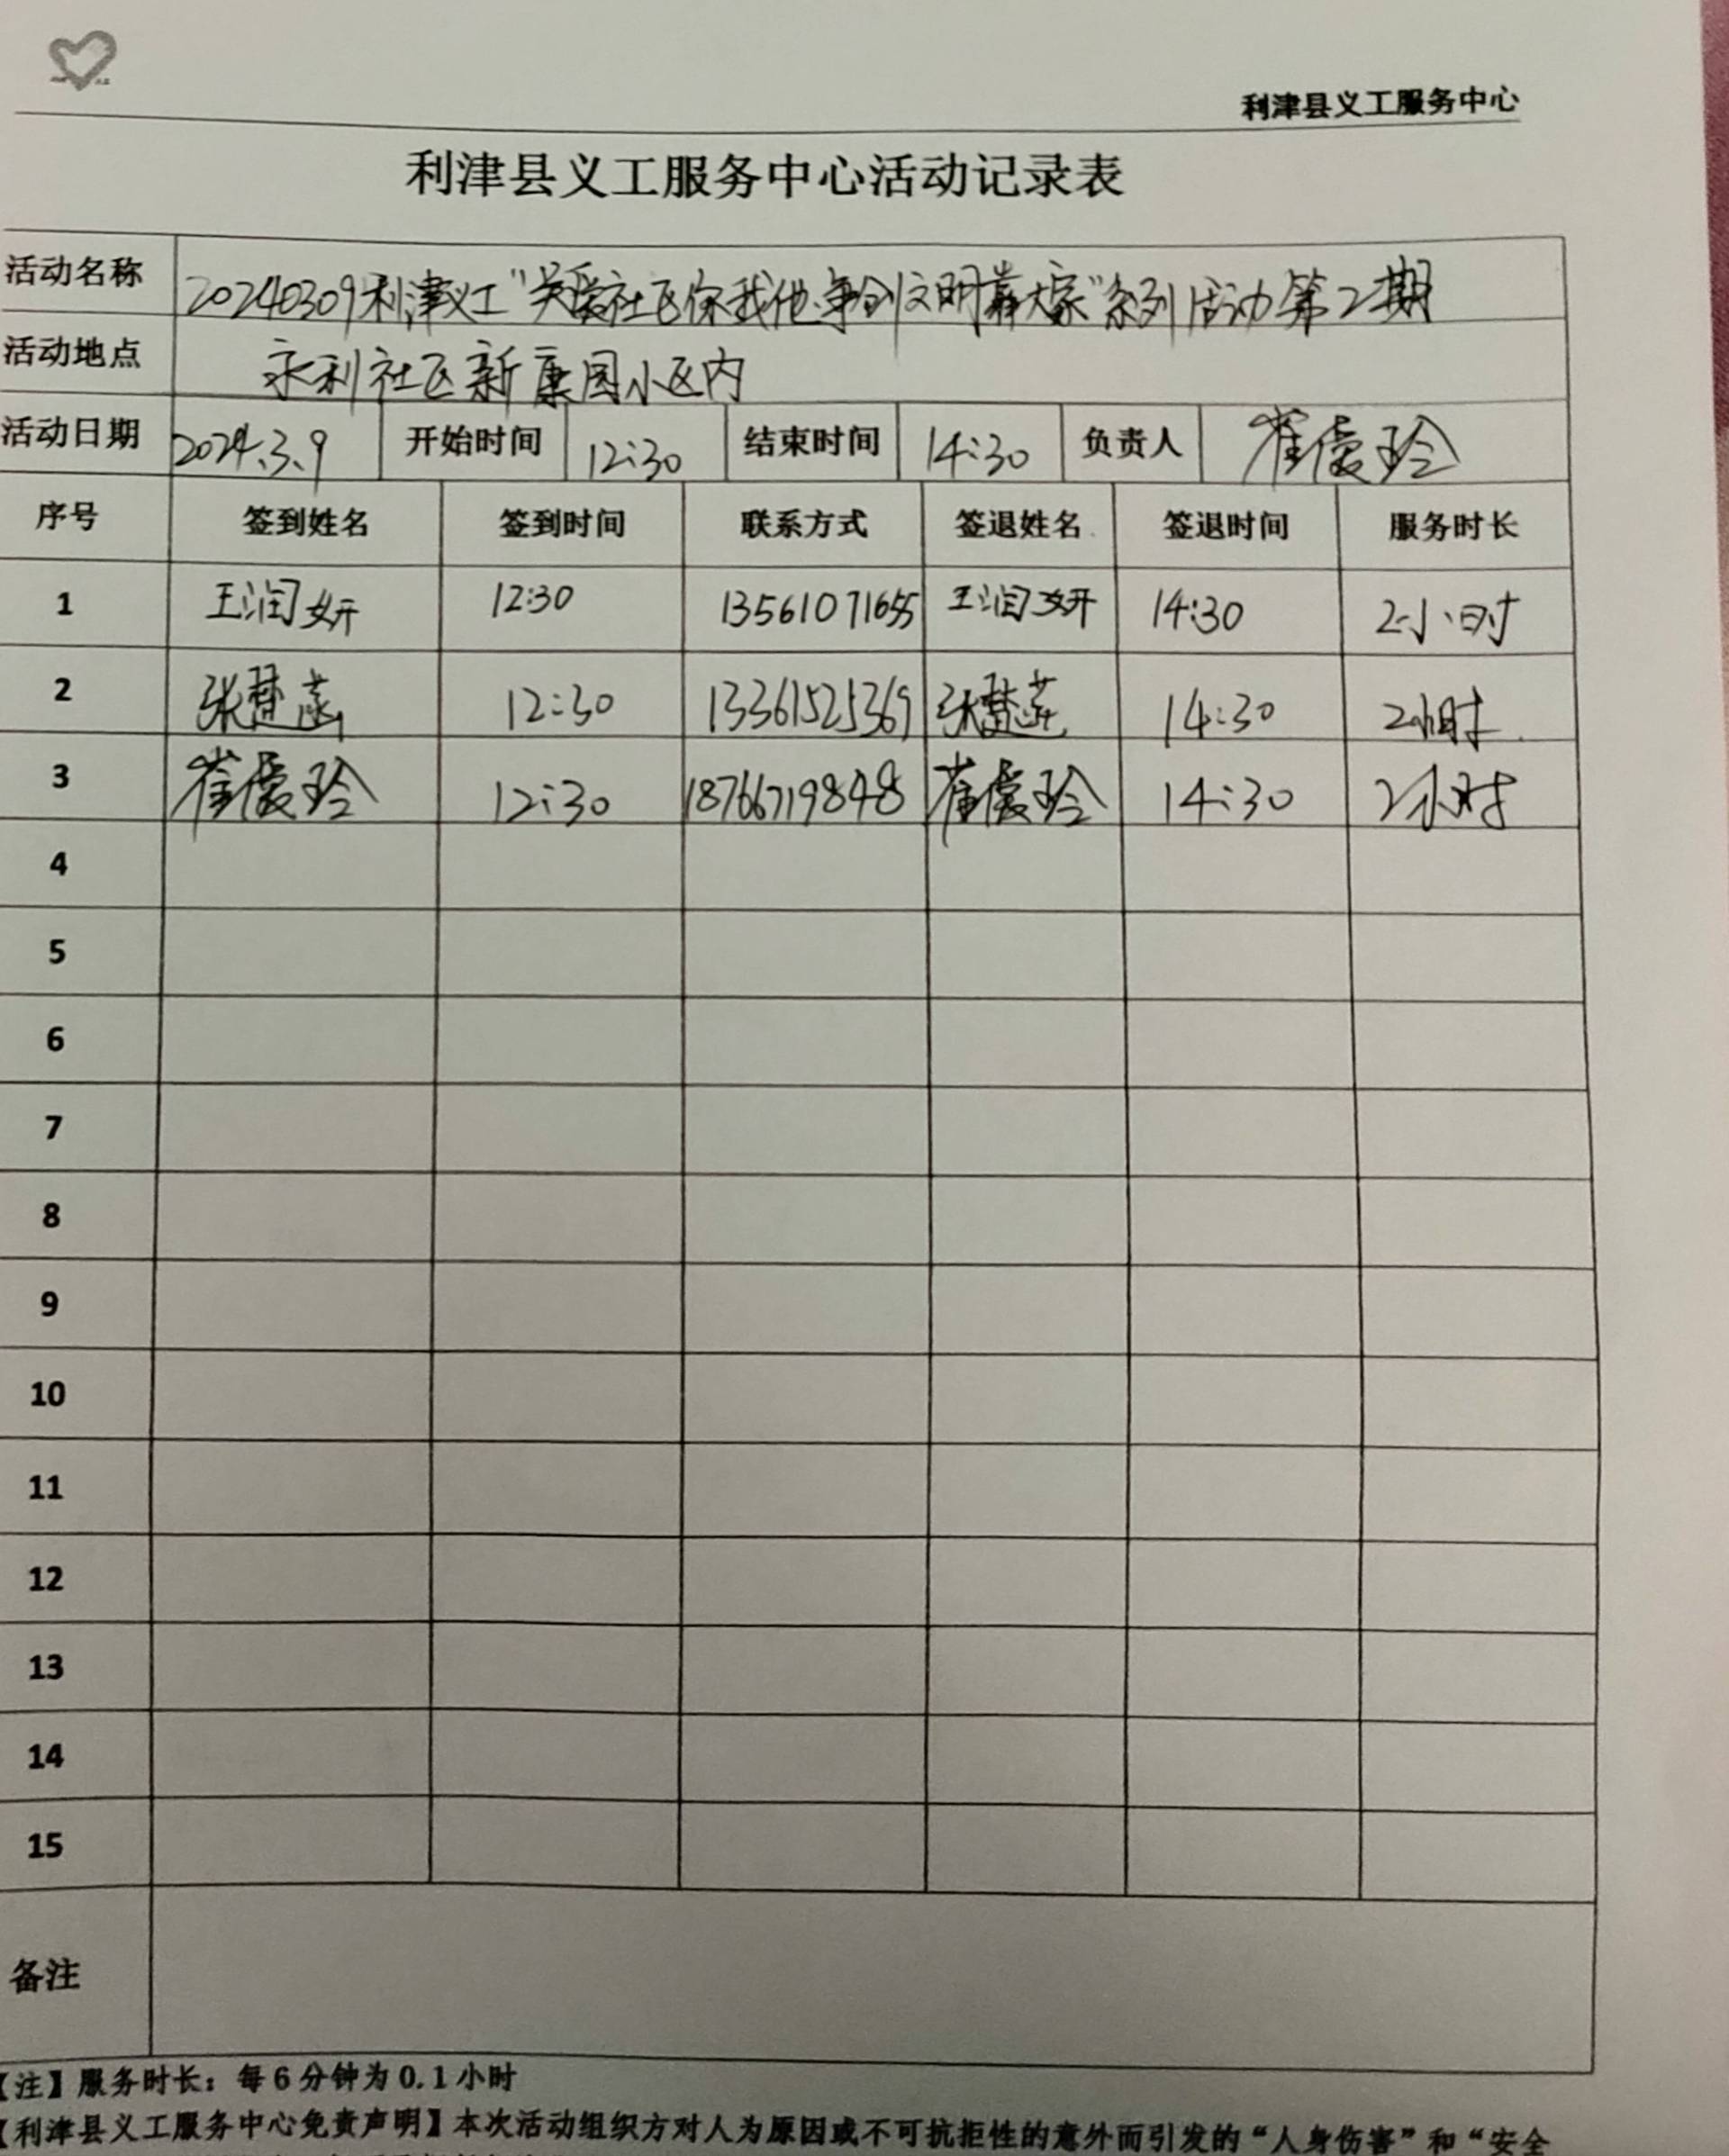 利津县义工服务中心
利津县义工服务中心活动记录表
活动名称 20240309利津义工“关爱社区你我他·争创文明靠大家”系列活动第2期
活动地点 永利社区新康园小区内
活动日期 2024.3.9 开始时间 12:30 结束时间 14:30 负责人 崔俊玲
序号 签到姓名 签到时间 联系方式 签退姓名 签退时间 服务时长
1 王润妍 12:30 13561071655 王润妍 14:30 2小时
2 张楚 12:30 13361525369 张楚 14:30 2小时
3 崔俊玲 12:30 18766719848 崔俊玲 14:30 2小时
4
5
6
7
8
9
10
11
12
13
14
15
备注
【注】服务时长：每6分钟为0.1小时
【利津县义工服务中心免责声明】本次活动组织方对人为原因或不可抗拒性的意外而引发的“人身伤害”和“安全